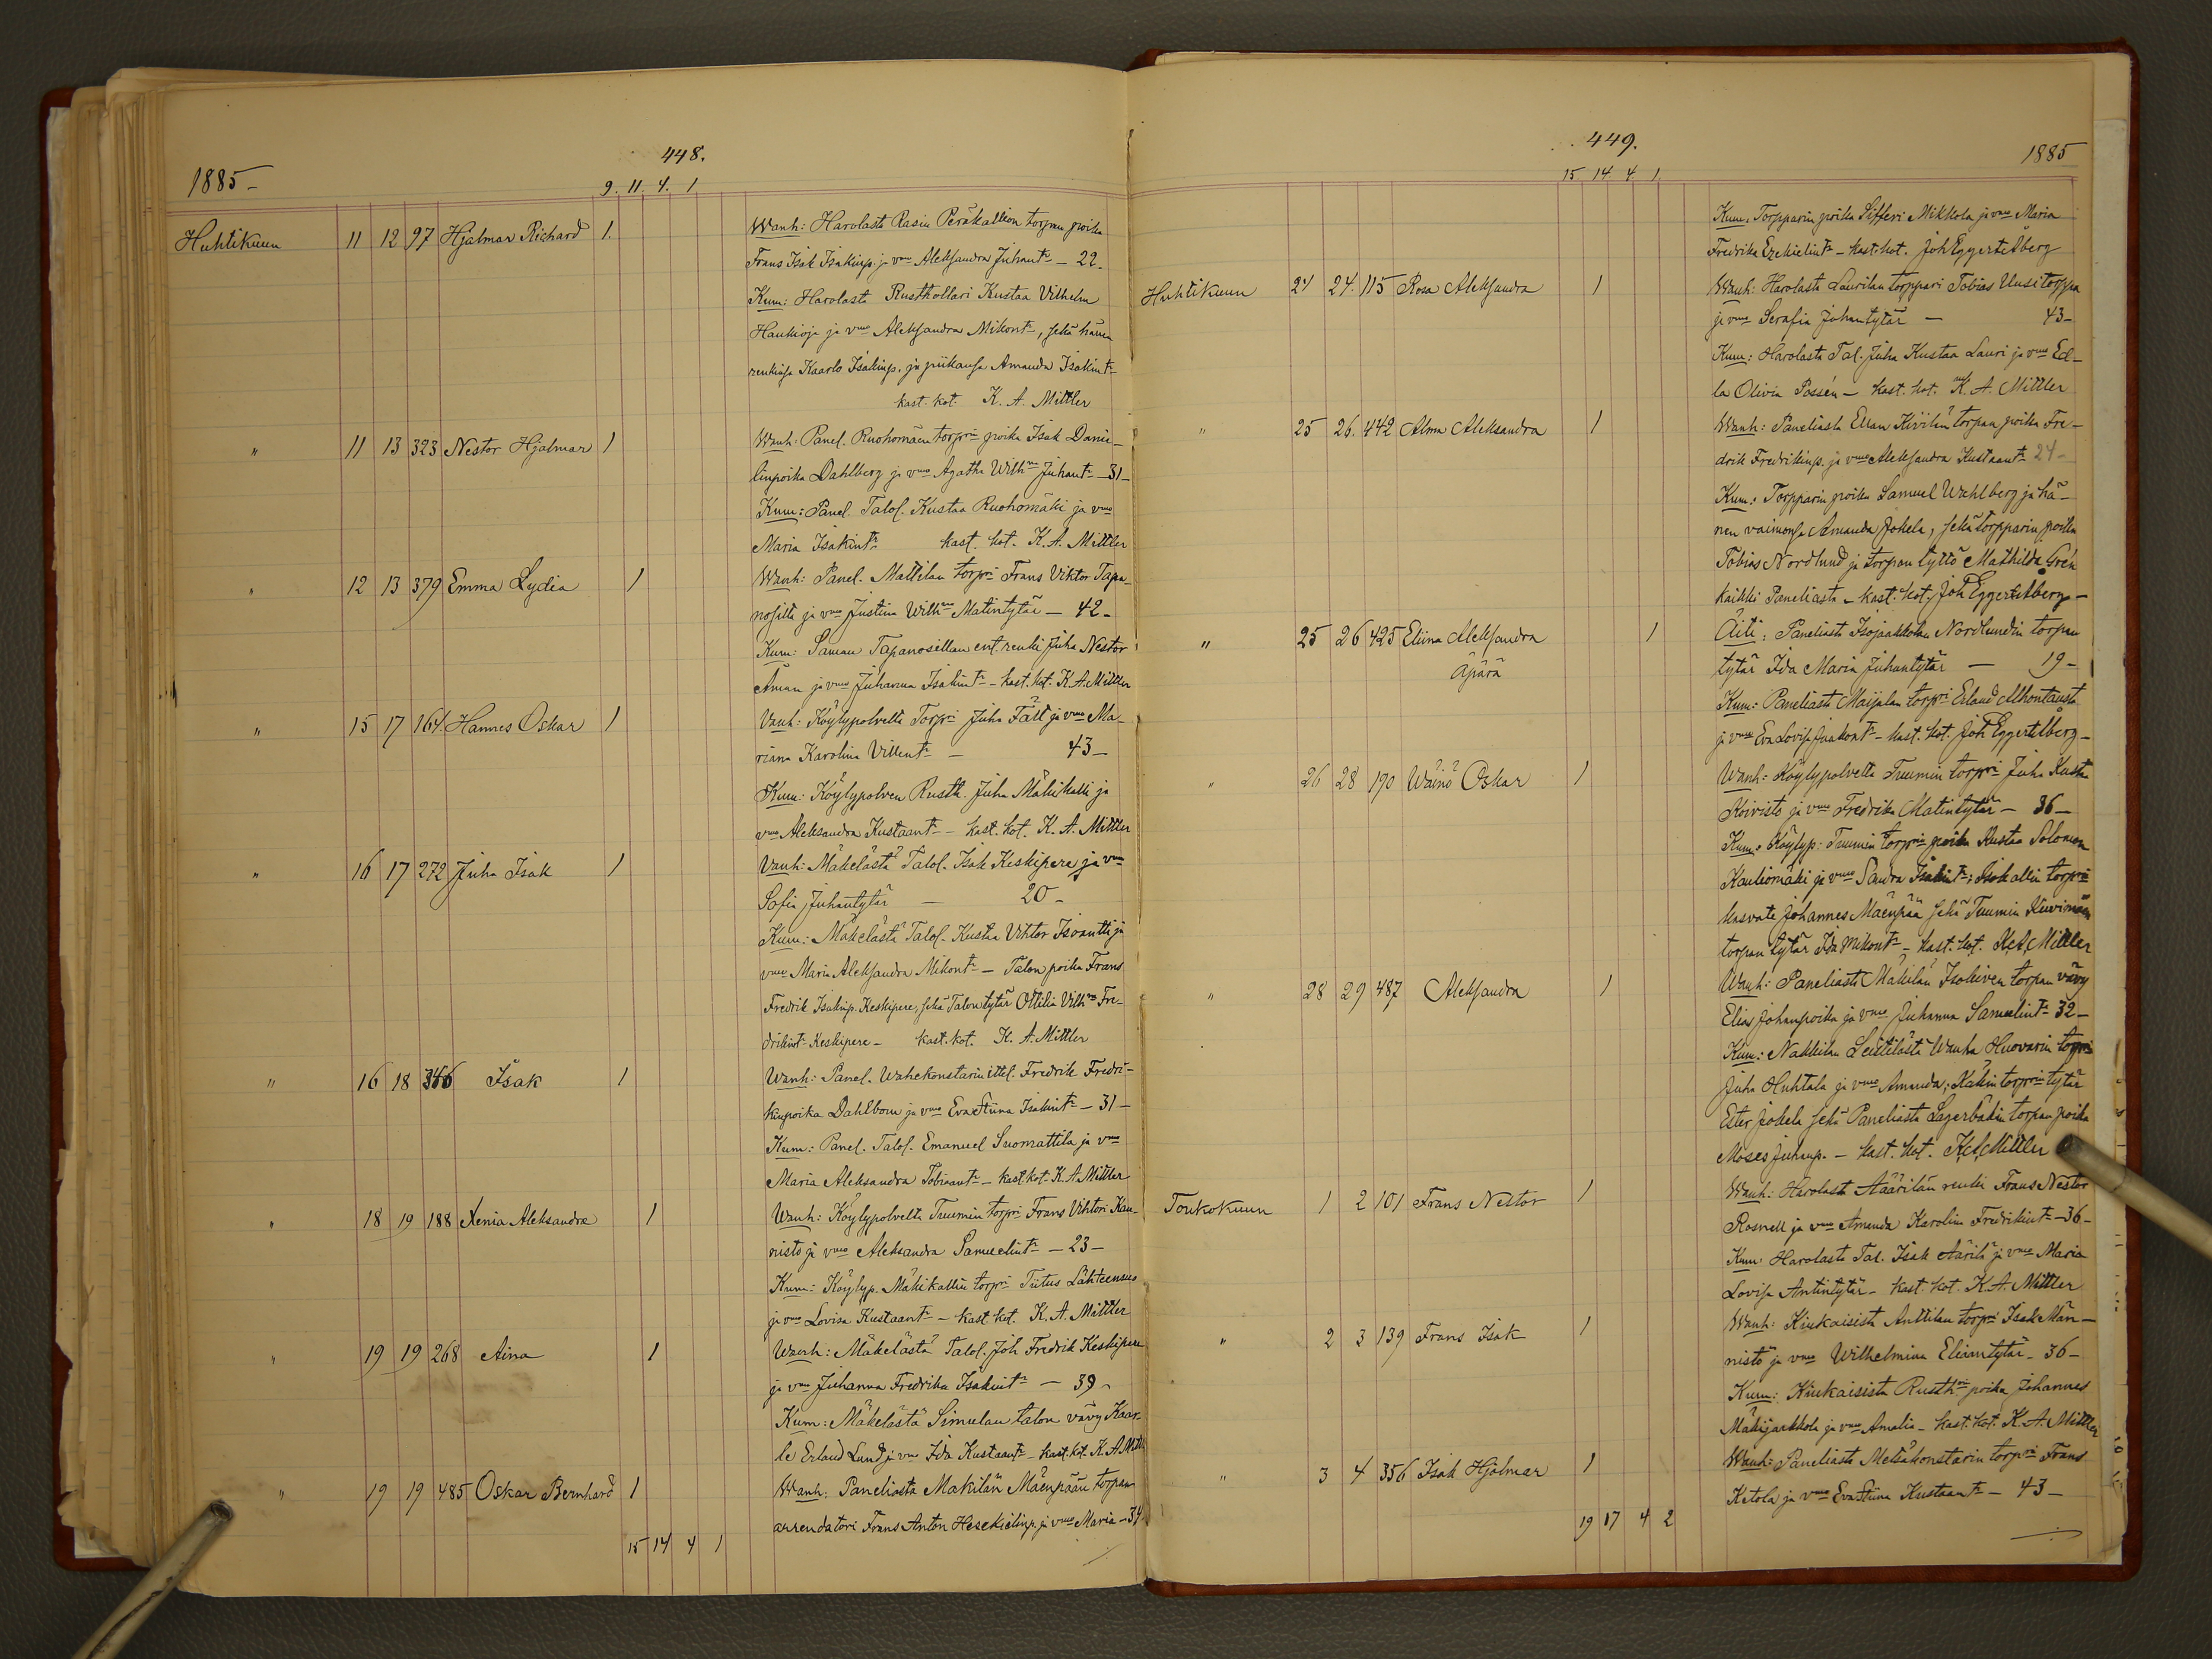 448.
1885 –
9. 11. 4. 1
Huhtikuun 11 12 97 Hjalmar Richard 1. Wanh: Harolasta Rasin Peräkallion torpan poika
Frans Isak Isakinp. ja vmo Aleksandra Juhant. – 22 –
Kum: Harolast Rusthollari Kustaa Vilhelm
Haukioja ja vmo Aleksandra Mikont., sekä hänen
renkinsä Kaarlo Isakinp. ja piikansa Amanda Isakint.
kast. kot. K. A. Mittler
" 11 13 323 Nestor Hjalmar 1 Wanh: Panel. Ruohomäen torpri poika Isak Danie–
linpoika Dahlberg ja vmo Agatha Wilhna Juhant. – 31 –
Kum: Panel. Talol. Kustaa Ruohomäki ja vmo
Maria Isakint. kast. kot. K. A. Mittler
" 12 13 379 Emma Lydia 1 Wanh: Panel. Mattilan torpri Frans Viktor Tapa–
nosilta ja vmo Justina Wilhna Matintytär – 42 –
Kum: Saman Tapanosillan ent. renki Juha Nestor
Åman ja vmo Juhanna Isakint. – kast. kot. K. A. Mittler
" 15 17 164 Hannes Oskar 1 Vanh: Köylypolvelta Torpri Juha Fält ja vmo Ma–
riana Karolina Villent. – 43 –
Kum: Köylypolven Rusth. Juha Mäkikalli ja
vmo Aleksandra Kustaant. – kast. kot. K. A. Mittler
" 16 17 272 Juha Isak 1 Vanh: Mäkelästä Talol. Isak Keskipere ja vmo
Sofia Juhantytär – 20 –
Kum: Mäkelästä Talol. Kustaa Vihtor Isoantti ja
vmo Maria Aleksandra Mikont. – Talon poika Frans
Fredrik Isakinp. Keskipere, sekä Talon tytär Ottilia Vilhna Fre–
drikint. Keskipere – kast. kot. K. A. Mittler
" 16 18 346 Isak 1 Wanh: Panel. Wahekonstarin ittel. Fredrik Fredri–
kinpoika Dahlbom ja vmo Eva Stiina Isakint. – 31 –
Kum: Panel. Talol. Emanuel Suomattila ja vmo
Maria Aleksandra Tobiaant. – kast. kot. K. A. Mittler
" 18 19 188 Xenia Aleksandra 1 Wanh: Köylypolvelta Tuumin torpri Frans Vihtori Kau–
nisto ja vmo Aleksandra Samuelint. – 23 –
Kum: Köylyp. Mäkikallin torpri Tiitus Lähteensuo
ja vmo Lovisa Kustaant. – kast. kot. K. A. Mittler
" 19 19 268 Aina 1 Wanh: Mäkelästä Talol. Joh Fredrik Keskipere
ja vmo Juhanna Fredrika Isakint. – 39 –
Kum: Mäkelästä Simulan talon vävy Kaar–
le Erland Lund ja vmo Ida Kustaant. – kast. kot. K. A. Mittl
" 19 19 485 Oskar Bernhard 1 Wanh: Paneliasta Makilän Mäenpään torpan
arrendatori Frans Anton Hesekielinp. ja vmo Maria – 34
15 14 4 1
449.
1885
15 14 4 1.
Kum: Torpparin poika Sifferi Mikkola ja vmo Maria
Fredrika Ezekielint. – kast. kot. Joh Eggert Åberg
Huhtikuun 24 24. 115 Rosa Aleksandra 1 Wanh: Harolasta Laurilan torppari Tobias Uusitorppa
ja vmo Serafia Johantytär – 43 –
Kum: Harolasta Tal. Juha Kustaa Lauri ja vmo Ed–
la Olivia Possén – kast. kot. K. A. Mittler
" 25 26. 442 Alma Aleksandra 1 Wanh: Paneliasta Ellan Kivilän torpan poika Fre–
drik Fredrikinp. ja vmo Aleksandra Kustaant. 24 –
Kum: Torpparin poika Samuel Wahlberg ja hä–
nen vaimonsa Amanda Jokela, sekä torpparin poika
Tobias Nordlund ja torpan tyttö Mathilda Grén
kaikki Paneliasta – kast. kot. Joh Eggert Åberg –
" 25 26 425 Eliina Aleksandra 1 Äiti: Paneliasta Isojaakkolan Nordlundin torpan
Äpärä tytär Ida Maria Juhantytär – 19 –
Kum: Paneliasta Maijalan torpri Erland Alhontausta
ja vmo Eva Lovisa Jaakont. – kast. kot. Joh Eggert Åberg –
" 26 28 190 Wäinö Oskar 1 Wanh: Köylypolvelta Tuumin torpri Juha Kusta
Koivisto ja vmo Fredrika Matintytär – 36 –
Kum: Köylyp. Tuumin torpri poika Kustaa Salomon
Kauliomäki ja vmo Sandra Isakint.; Isokallin torpri
kasvate Johannes Mäenpää sekä Tuumin Kuivinmäen
torpan tytär Ida Mikont. – kast. kot. K. A. Mittler
" 28 29 487 Aleksandra 1 Wanh: Paneliasta Mäkilän Isokiven torpan vävy
Elias Johanpoika ja vmo Juhanna Samuelint. 32 –
Kum: Nakkilan Leistilästä Wanha Huovarin torpri
Juha Huhtala ja vmo Amanda; Kakin torpri tytär
Ester Jokela sekä Paneliasta Lagerbäkin torpan poika
Moses Juhanp. – kast. kot. K. A. Mittler
Toukokuun 1 2 101 Frans Nestor 1 Wanh: Harolasta Äärilän renki Frans Nestor
Rosnell ja vmo Amanda Karolina Fredrikint. – 36 –
Kum: Harolasta Tal. Isak Äärilä ja vmo Maria
Lovisa Antintytär – kast. kot. K. A. Mittler
" 2 3 139 Frans Isak 1 Wanh: Kiukaisista Anttilan torpri Isak Män–
nistö ja vmo Wilhelmina Eliaantytär – 36 –
Kum: Kiukaisista Rusthrin poika Johannes
Mäkijaakkola ja vmo Amalia – kast. kot. K. A. Mittler
" 3 4 356 Isak Hjalmar 1 Wanh: Paneliasta Metsäkonstarin torpri Frans
Ketola ja vmo Eva Stiina Kustaant. – 43 –
19 17 4 2